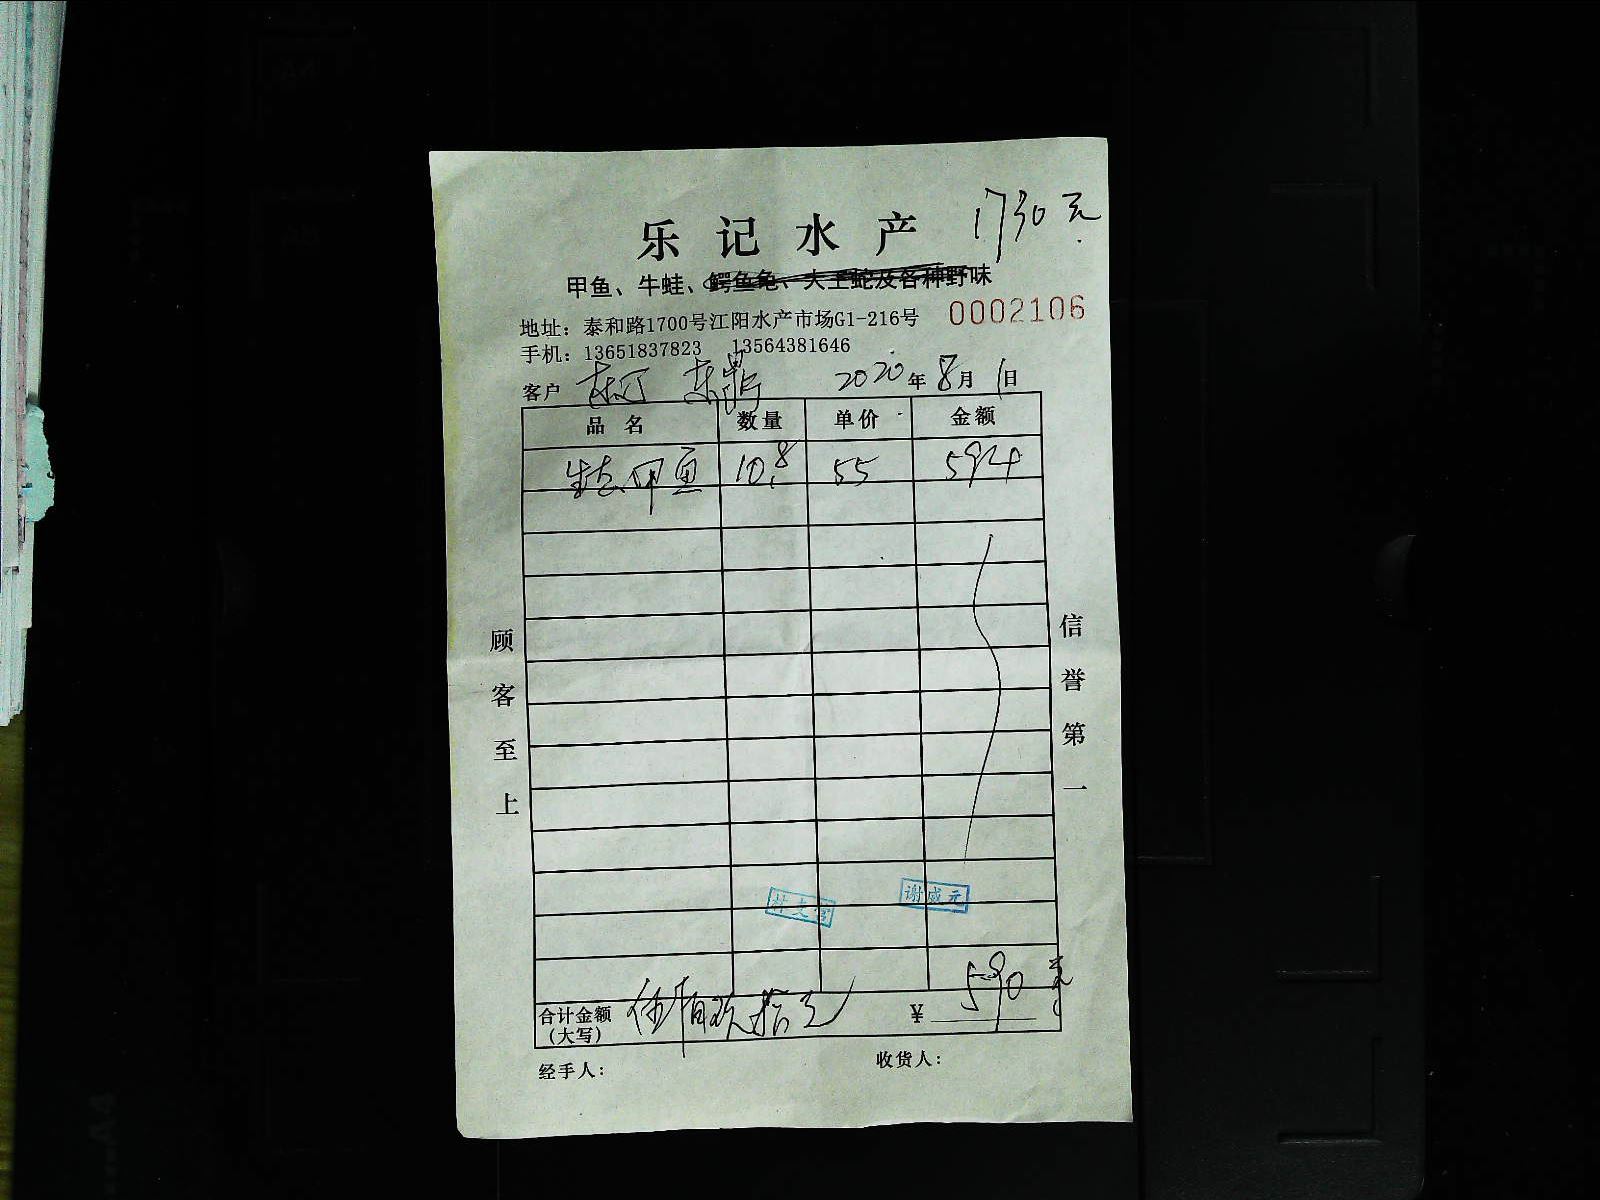 1730元
乐记水产
甲鱼、牛蛙、鳄鱼龟、大王蛇及各种野味
地址：泰和路1700号江阳水产市场G1-216号
0002106
手机：13651837823 13564381646
客户 2020年8月1日
品名 数量 单价 金额
生态甲鱼 10.8 55 594
顾客至上
信誉第一
谢威元
合计金额（大写） 伍佰玖拾元 ¥ 590元
经手人：
收货人：